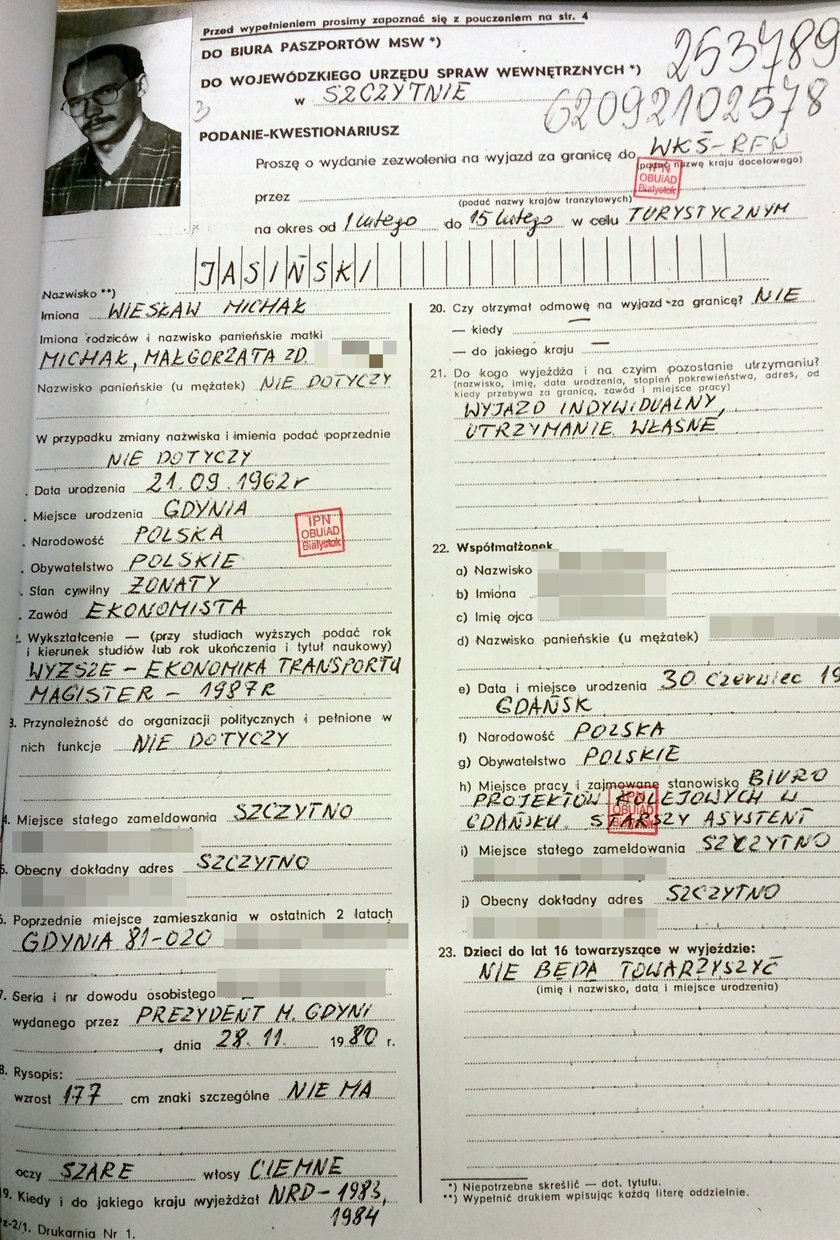 Przed wypełnieniem prosimy zapoznać się z pouczeniem na str. 4
DO BIURA PASZPORTÓW MSW *)
DO WOJEWÓDZKIEGO URZĘDU SPRAW WEWNĘTRZNYCH *)
w SZCZYTNIE
253789
62092102578
3
PODANIE-KWESTIONARIUSZ
Proszę o wydanie zezwolenia na wyjazd za granicę do WKŚ-RFN
(podać nazwę kraju docelowego)
IPN
OBUiAD
Białystok
przez
(podać nazwy krajów tranzytowych)
na okres od 1 lutego do 15 lutego w celu TURYSTYCZNYM
JASIŃSKI
Nazwisko **)
Imiona WIESŁAW MICHAŁ
Imiona rodziców i nazwisko panieńskie matki
MICHAŁ, MAŁGORZATA ZD.
Nazwisko panieńskie (u mężatek) NIE DOTYCZY
W przypadku zmiany nazwiska i imienia podać poprzednie
NIE DOTYCZY
. Data urodzenia 21.09.1962r
. Miejsce urodzenia GDYNIA
. Narodowość POLSKA
IPN
OBUiAD
Białystok
. Obywatelstwo POLSKIE
. Stan cywilny ŻONATY
. Zawód EKONOMISTA
2. Wykształcenie — (przy studiach wyższych podać rok
i kierunek studiów lub rok ukończenia i tytuł naukowy)
WYŻSZE - EKONOMIKA TRANSPORTU
MAGISTER - 1987R
3. Przynależność do organizacji politycznych i pełnione w
nich funkcje NIE DOTYCZY
4. Miejsce stałego zameldowania SZCZYTNO
5. Obecny dokładny adres SZCZYTNO
6. Poprzednie miejsce zamieszkania w ostatnich 2 latach
GDYNIA 81-020
7. Seria i nr dowodu osobistego
wydanego przez PREZYDENT M. GDYNI
, dnia 28.11. 1980 r.
8. Rysopis:
wzrost 177 cm znaki szczególne NIE MA
oczy SZARE włosy CIEMNE
9. Kiedy i do jakiego kraju wyjeżdżał NRD - 1983,
1984
Pz-2/1. Drukarnia Nr 1.
20. Czy otrzymał odmowę na wyjazd za granicę? NIE
— kiedy —
— do jakiego kraju —
21. Do kogo wyjeżdża i na czyim pozostanie utrzymaniu?
(nazwisko, imię, data urodzenia, stopień pokrewieństwa, adres, od
kiedy przebywa za granicą, zawód i miejsce pracy)
WYJAZD INDYWIDUALNY,
UTRZYMANIE WŁASNE
22. Współmałżonek
a) Nazwisko
b) Imiona
c) Imię ojca
d) Nazwisko panieńskie (u mężatek)
e) Data i miejsce urodzenia 30 czerwiec 19
GDAŃSK
f) Narodowość POLSKA
g) Obywatelstwo POLSKIE
h) Miejsce pracy i zajmowane stanowisko BIURO
PROJEKTÓW KOLEJOWYCH W
GDAŃSKU STARSZY ASYSTENT
IPN
OBUiAD
Białystok
i) Miejsce stałego zameldowania SZCZYTNO
j) Obecny dokładny adres SZCZYTNO
23. Dzieci do lat 16 towarzyszące w wyjeździe:
NIE BĘDĄ TOWARZYSZYĆ
(imię i nazwisko, data i miejsce urodzenia)
*) Niepotrzebne skreślić — dot. tytułu.
**) Wypełnić drukiem wpisując każdą literę oddzielnie.